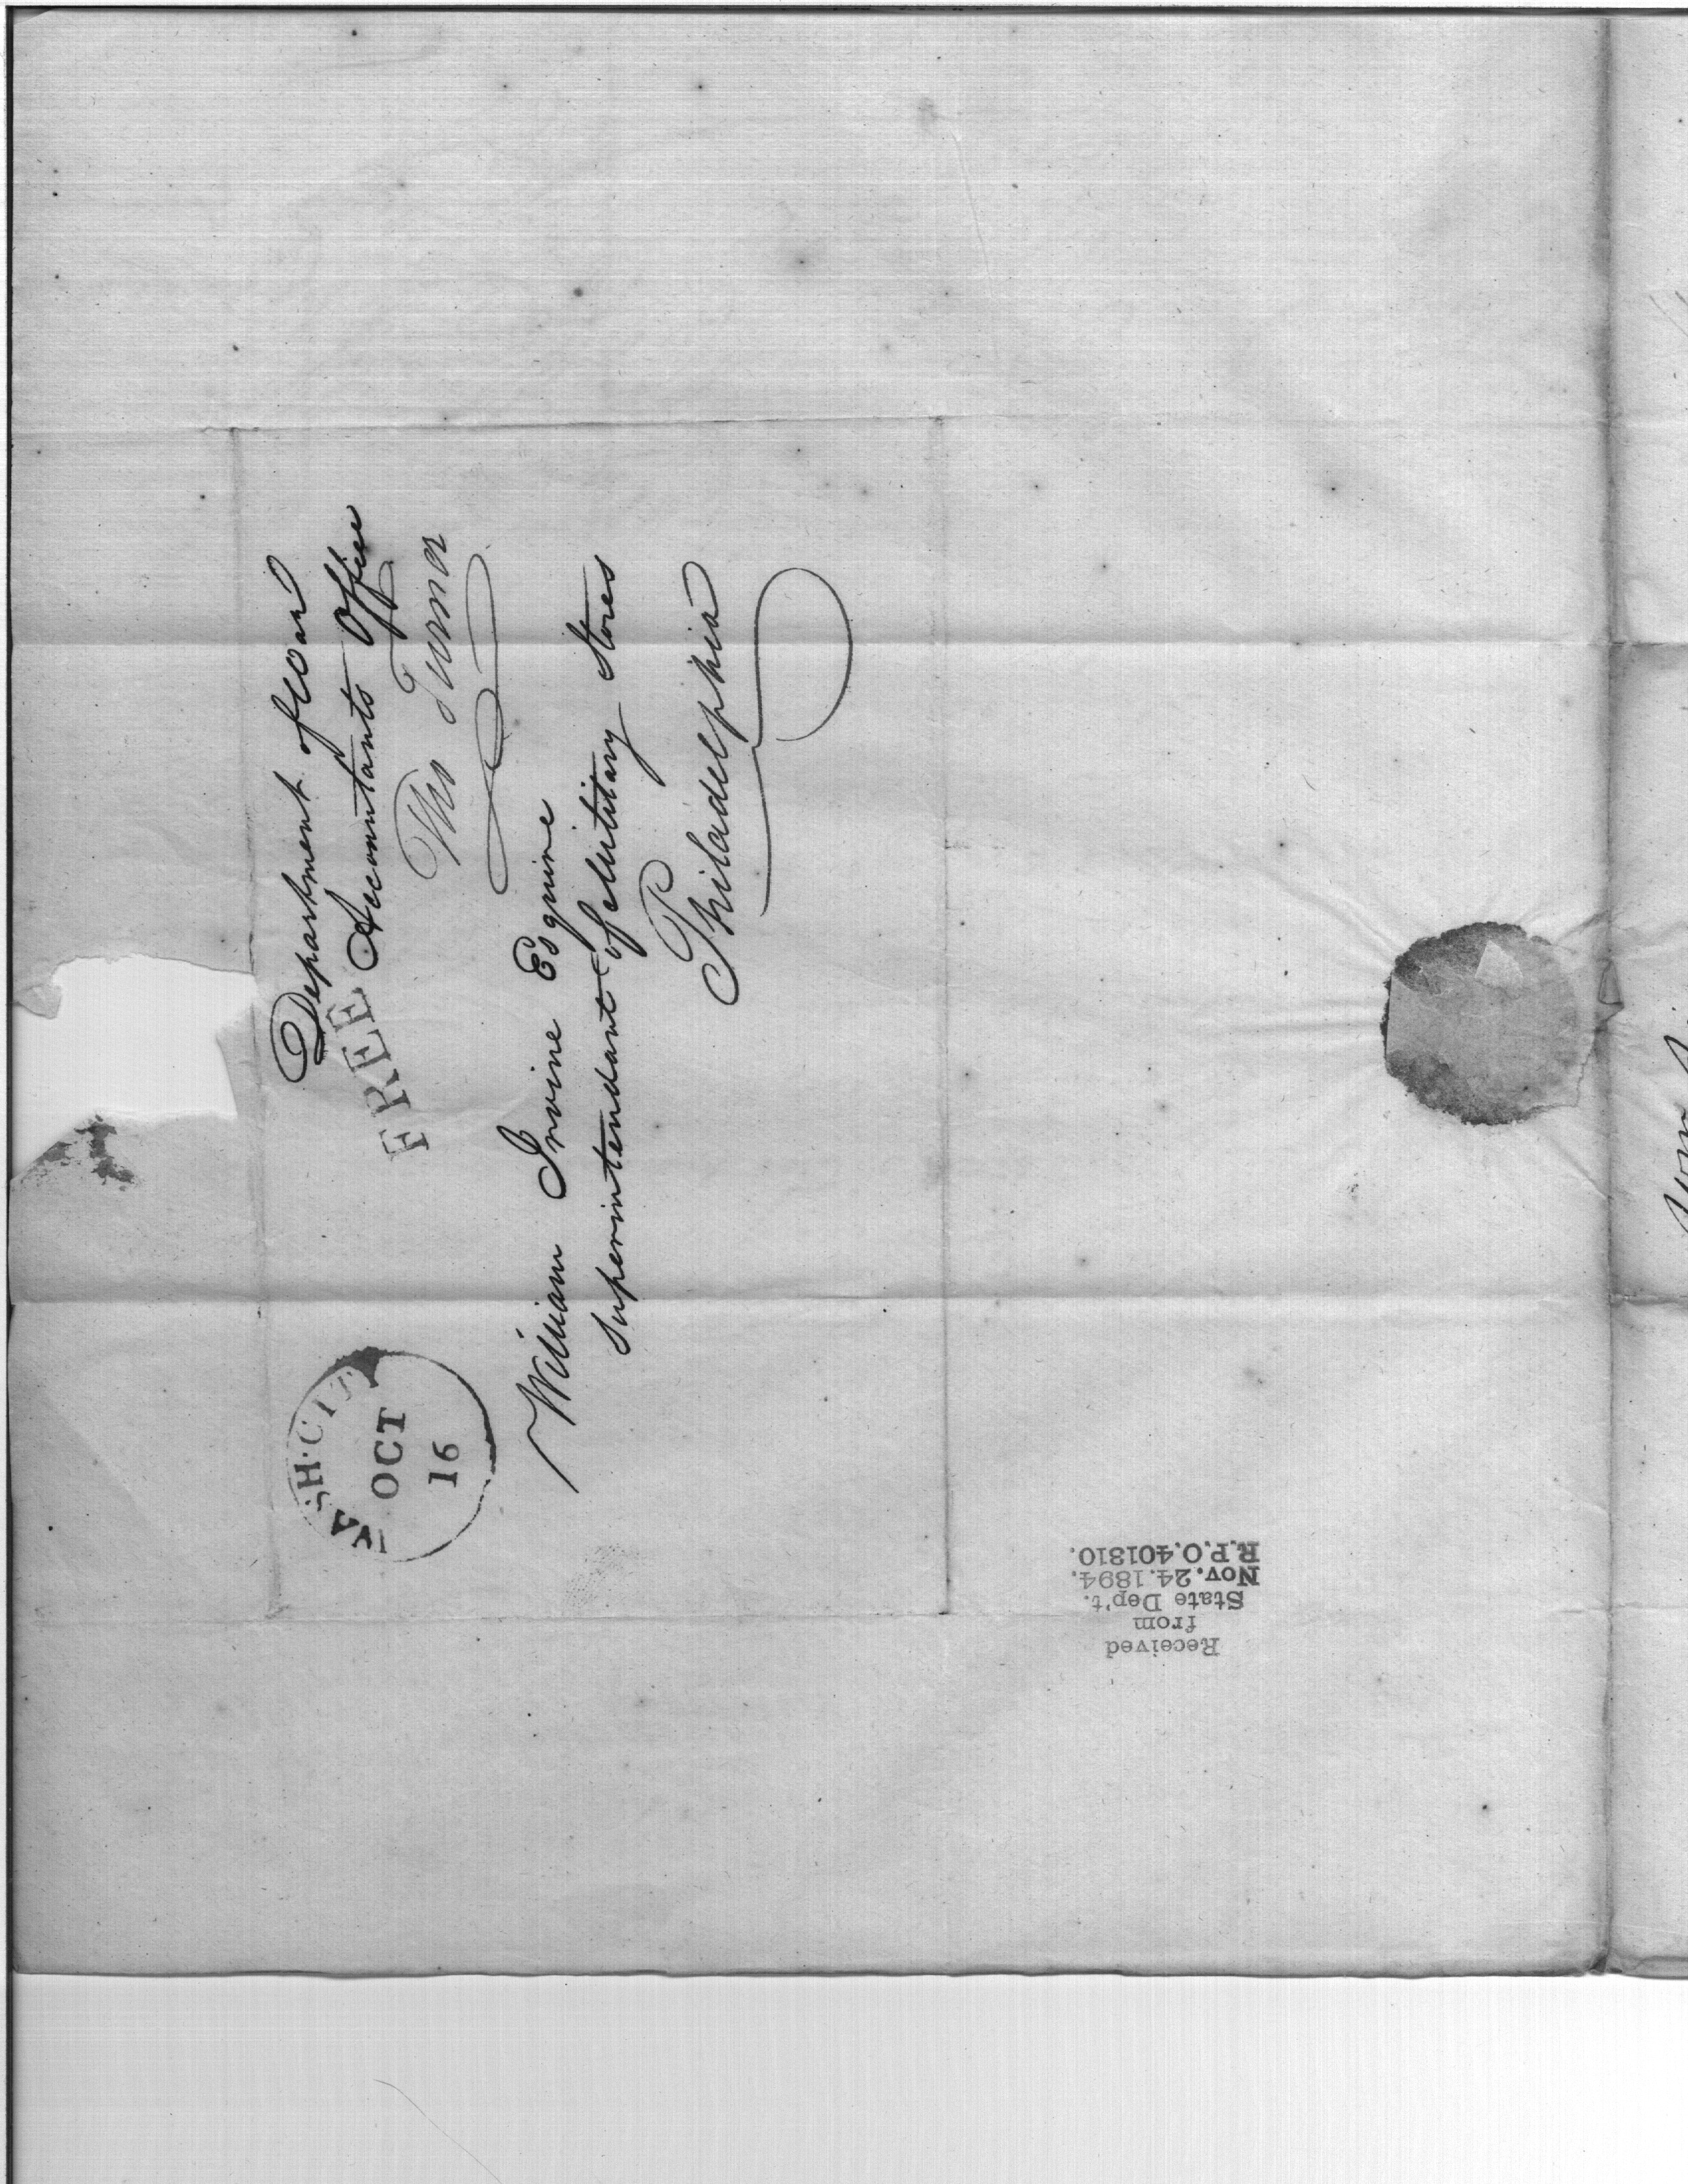 Department of War
Accountants Office
FREE
Tho Turner
WASH. CITY
OCT
16
William Irvine Esquire
Superintendant of Military Stores
Philadelphia
Received
from
State Dep't.
Nov. 24. 1894.
R.P.O. 401310.